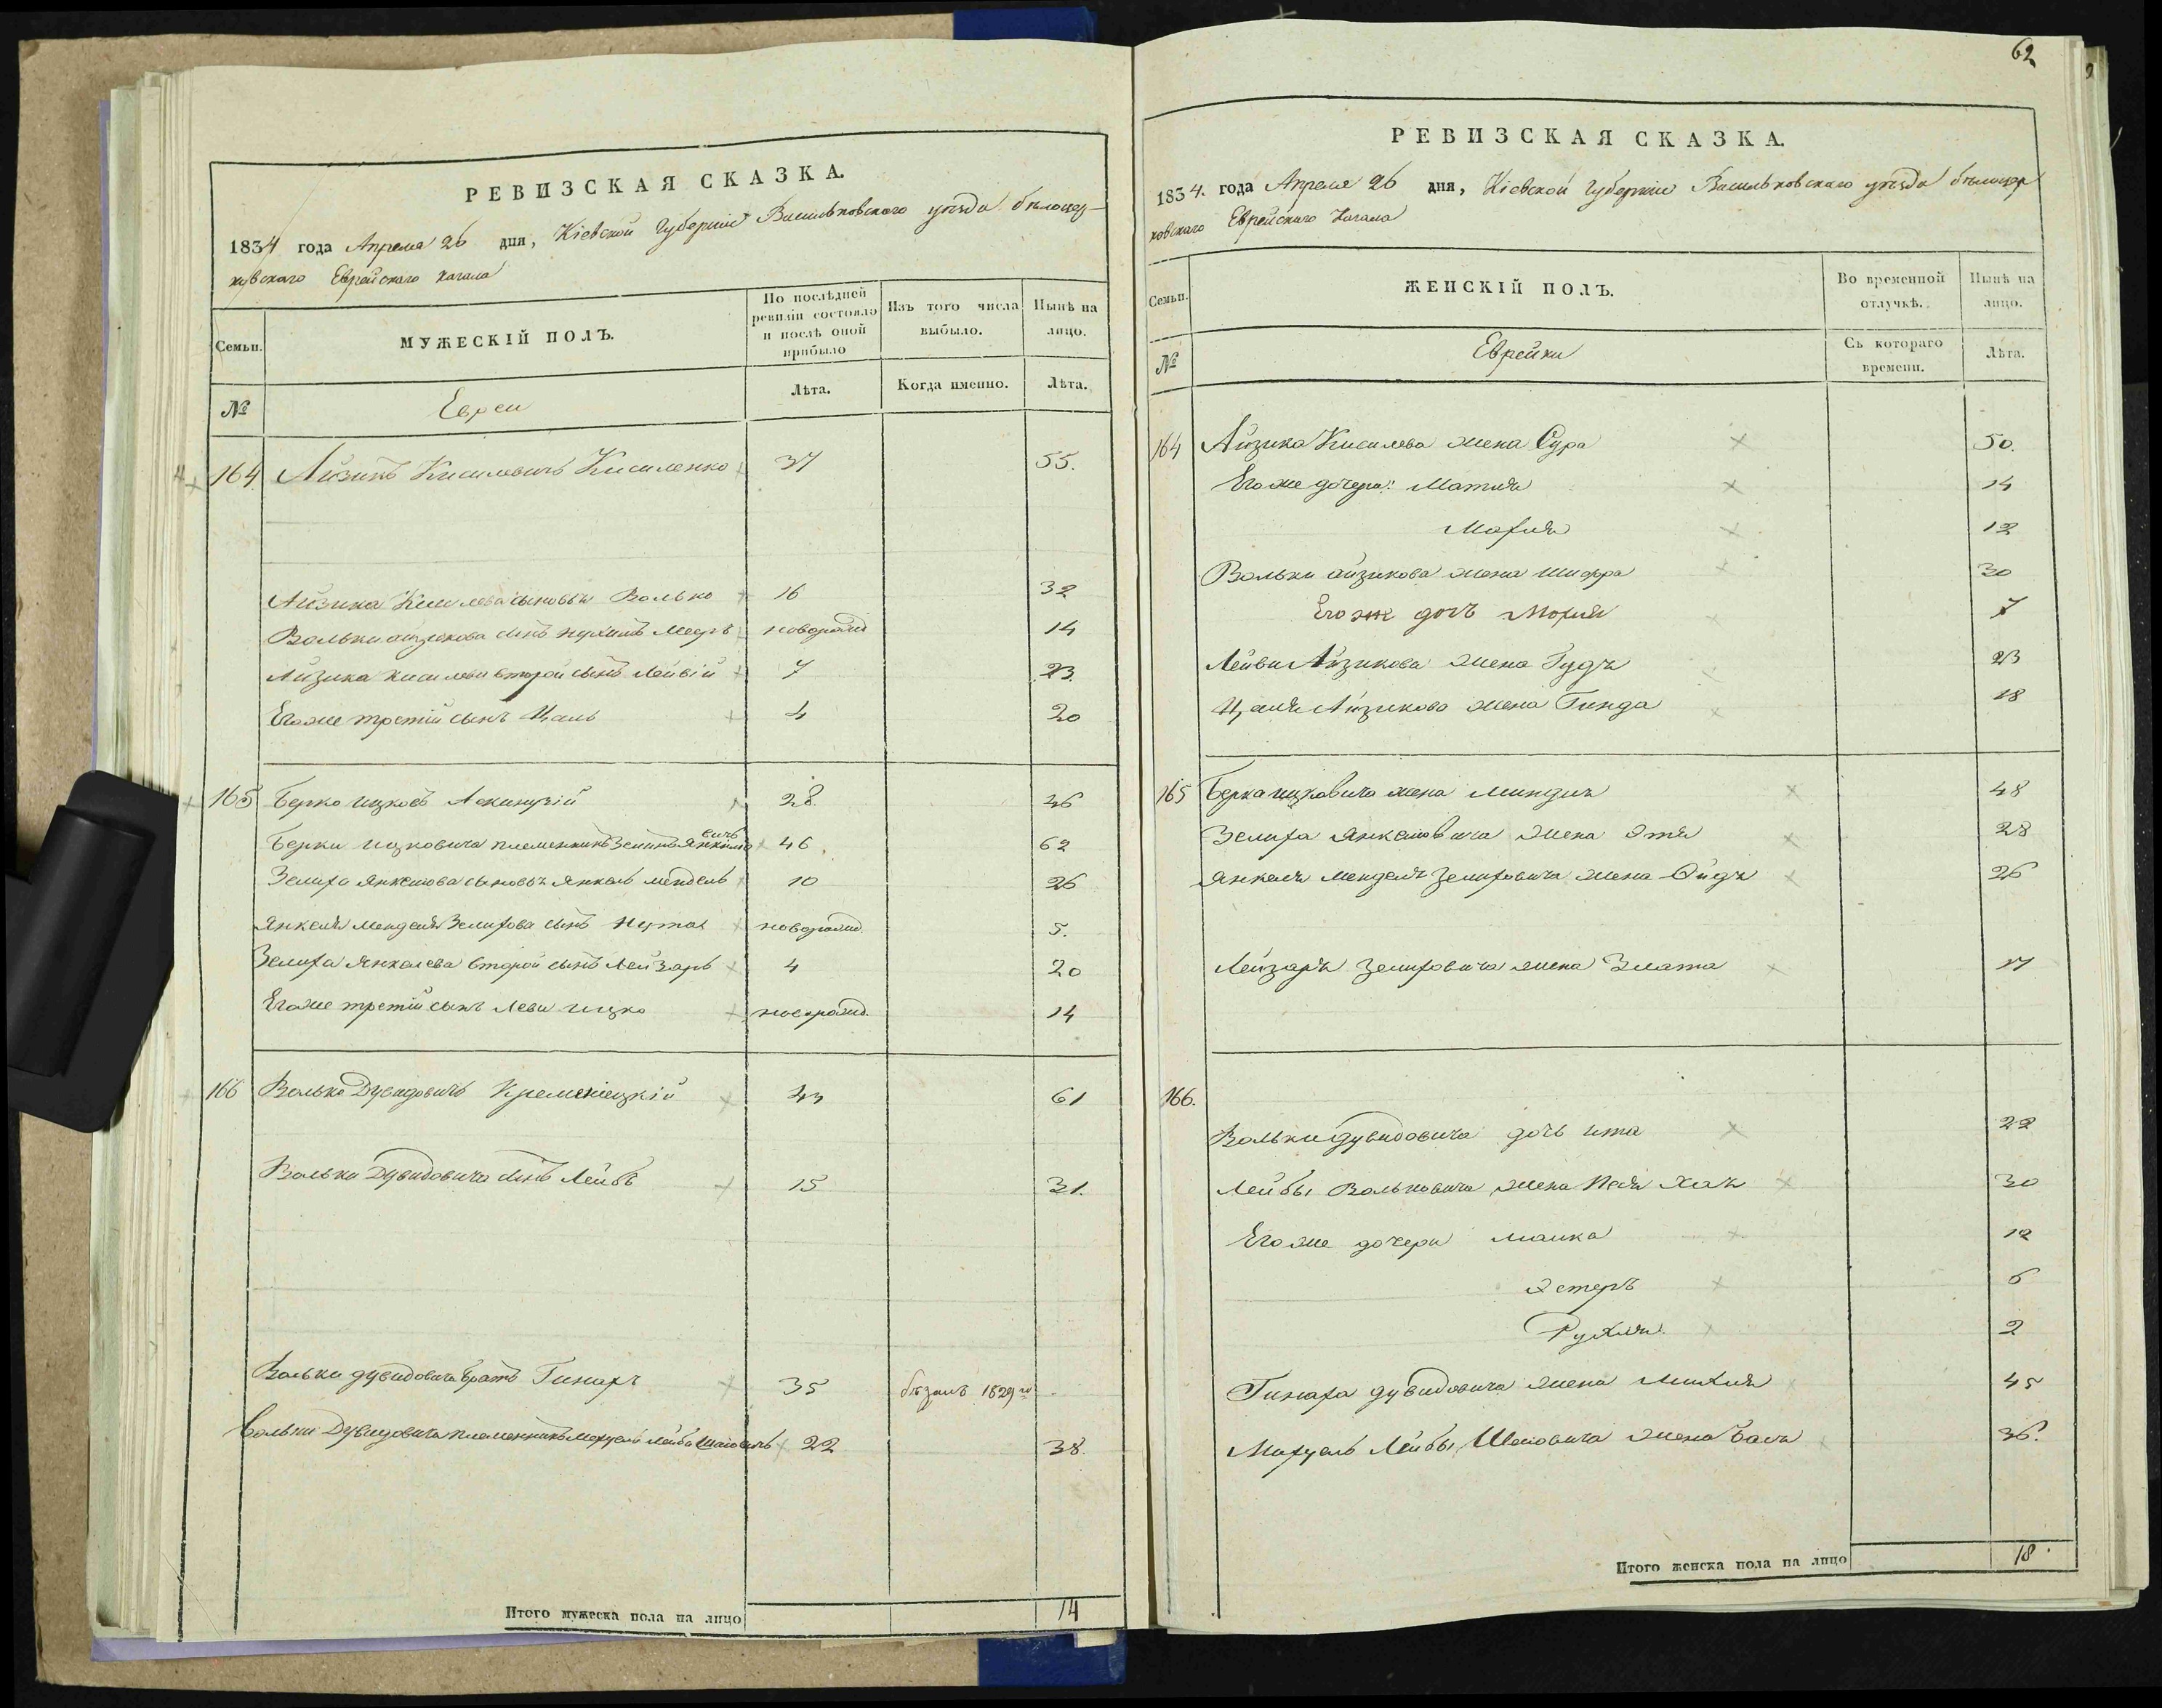 РЕВИЗСКАЯ СКАЗКА.
1834 года Апреля 26 дня, Кіевской Губерніи Васильковскаго уѣзда бѣлоцер-
ковскаго Еврейскаго Кагала
Семьи. МУЖЕСКІЙ ПОЛЪ. По послѣдней ревизіи состояло и послѣ оной прибыло Изъ того числа выбыло. Нынѣ на лицо.
№ Евреи Лѣта. Когда именно. Лѣта.
164 Айзикъ Киселевичъ Киселенко 37 55.
Айзика Киселева сыновья Волько 16 32
Вольки айзикова сынъ новорожд 14
Айзика Киселева второй сынъ Лейвій 7 23
Его же третій сынъ Цаль 4 20
165 Берко ицковъ 28. 46
Берки ицковича племенникъ Зелихъ Янкеле вичъ 46 62
Зелиха Янкелева сыновья Янкель мендель 10 26
Янкеля Менделя Зелихова сынъ Нута новорожд. 5.
Зелиха Янкелева второй сынъ Лейзаръ 4 20
Его же третій сынъ Леви ицко новорожд. 14
166 Волько Дувидовичъ Кременецкій 61
Вольки Дувидовича сынъ Лейба 15 31.
Вольки дувидовича братъ 35 1829го
Вольки Дувидовича племенникъ Лейба Шаіовичъ 22 38.
Итого мужеска пола на лицо 14
62
РЕВИЗСКАЯ СКАЗКА.
1834. года Апреля 26 дня, Кіевской Губерніи Васильковскаго уѣзда бѣлоцер
ковскаго Еврейскаго Кагала
Семьи. ЖЕНСКІЙ ПОЛЪ. Во временной отлучкѣ. Нынѣ на лицо.
№ Еврейки Съ котораго времени. Лѣта.
164 Айзика Киселева жена Сура 50.
Его же дочери: Матля 14
Махля 12
Вольки айзикова жена Шифра 30
Его же дочь Махля 7
Лейви Айзикова жена Гудя 23
Цаля Айзикова жена Гинда 18
165 Берка ицковича жена Миндля 48
Зелиха Янкелевича жена Этя 28
Янкеля Менделя Зелиховича жена 26
Лейзаря Зелиховича жена Злата 17
166.
Вольки дувидовича дочь ита 22
Лейбы Вольковича жена Хая 30
Его же дочери малка 12
Эстеръ 6
Рухля 2
дувидовича жена 45
Лейбы Шаіовича жена Бася 36.
Итого женска пола на лицо 18